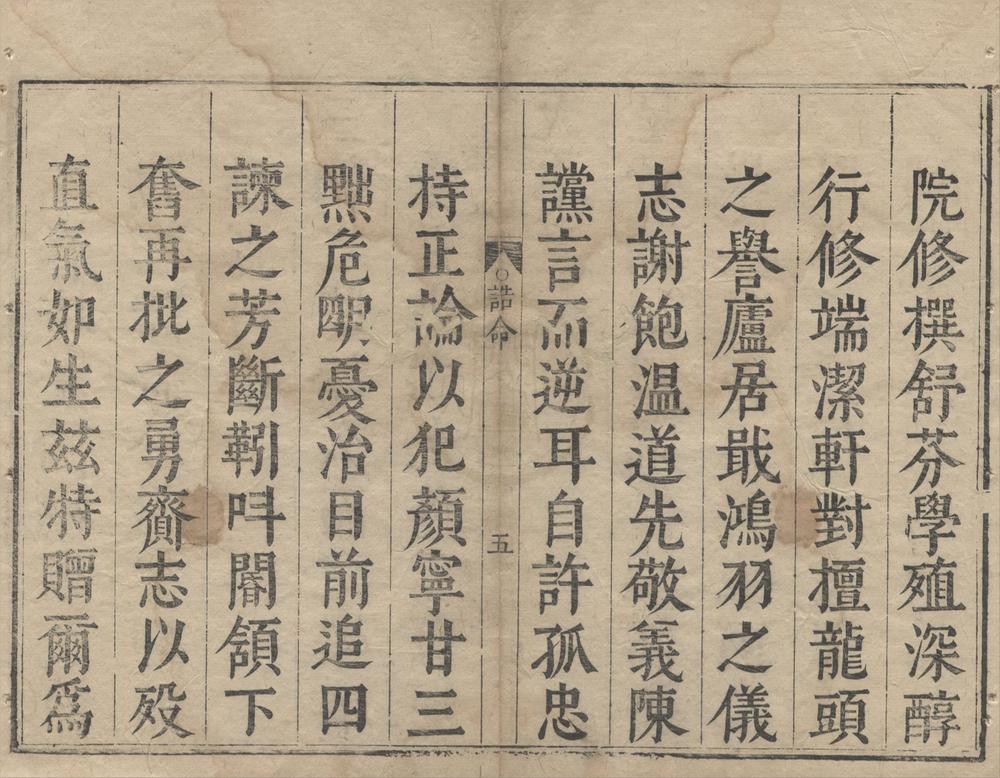 院修撰舒芬學殖深醇
行修端潔軒對擅龍頭
之譽廬居戢鴻羽之儀
志謝飽温道先敬義陳
讜言而逆耳自許孤忠
○誥命 五
持正論以犯顔寧甘三
黜危眀憂治目前追四
諫之芳斷靷呌閽頷下
奮再批之勇齎志以殁
直氣如生茲特贈爾爲